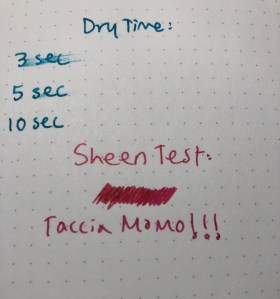 Dry Time:
3 sec
5 sec
10 sec
Sheen Test:
Taccia Momo!!!